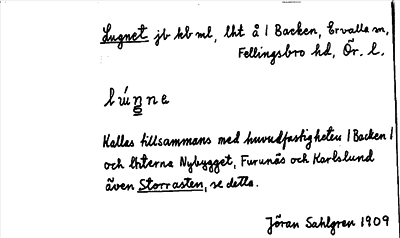 Lugnet jb kb ml, lht å 1 Backen, Ervalla sn,
Fellingsbro hd, Ör. l.
Kallas tillsammans med huvudfastigheten 1 Backen 1
och lhterna Nybygget, Furunäs och Karlslund
även Storrasten, se detta.
Jöran Sahlgren 1909